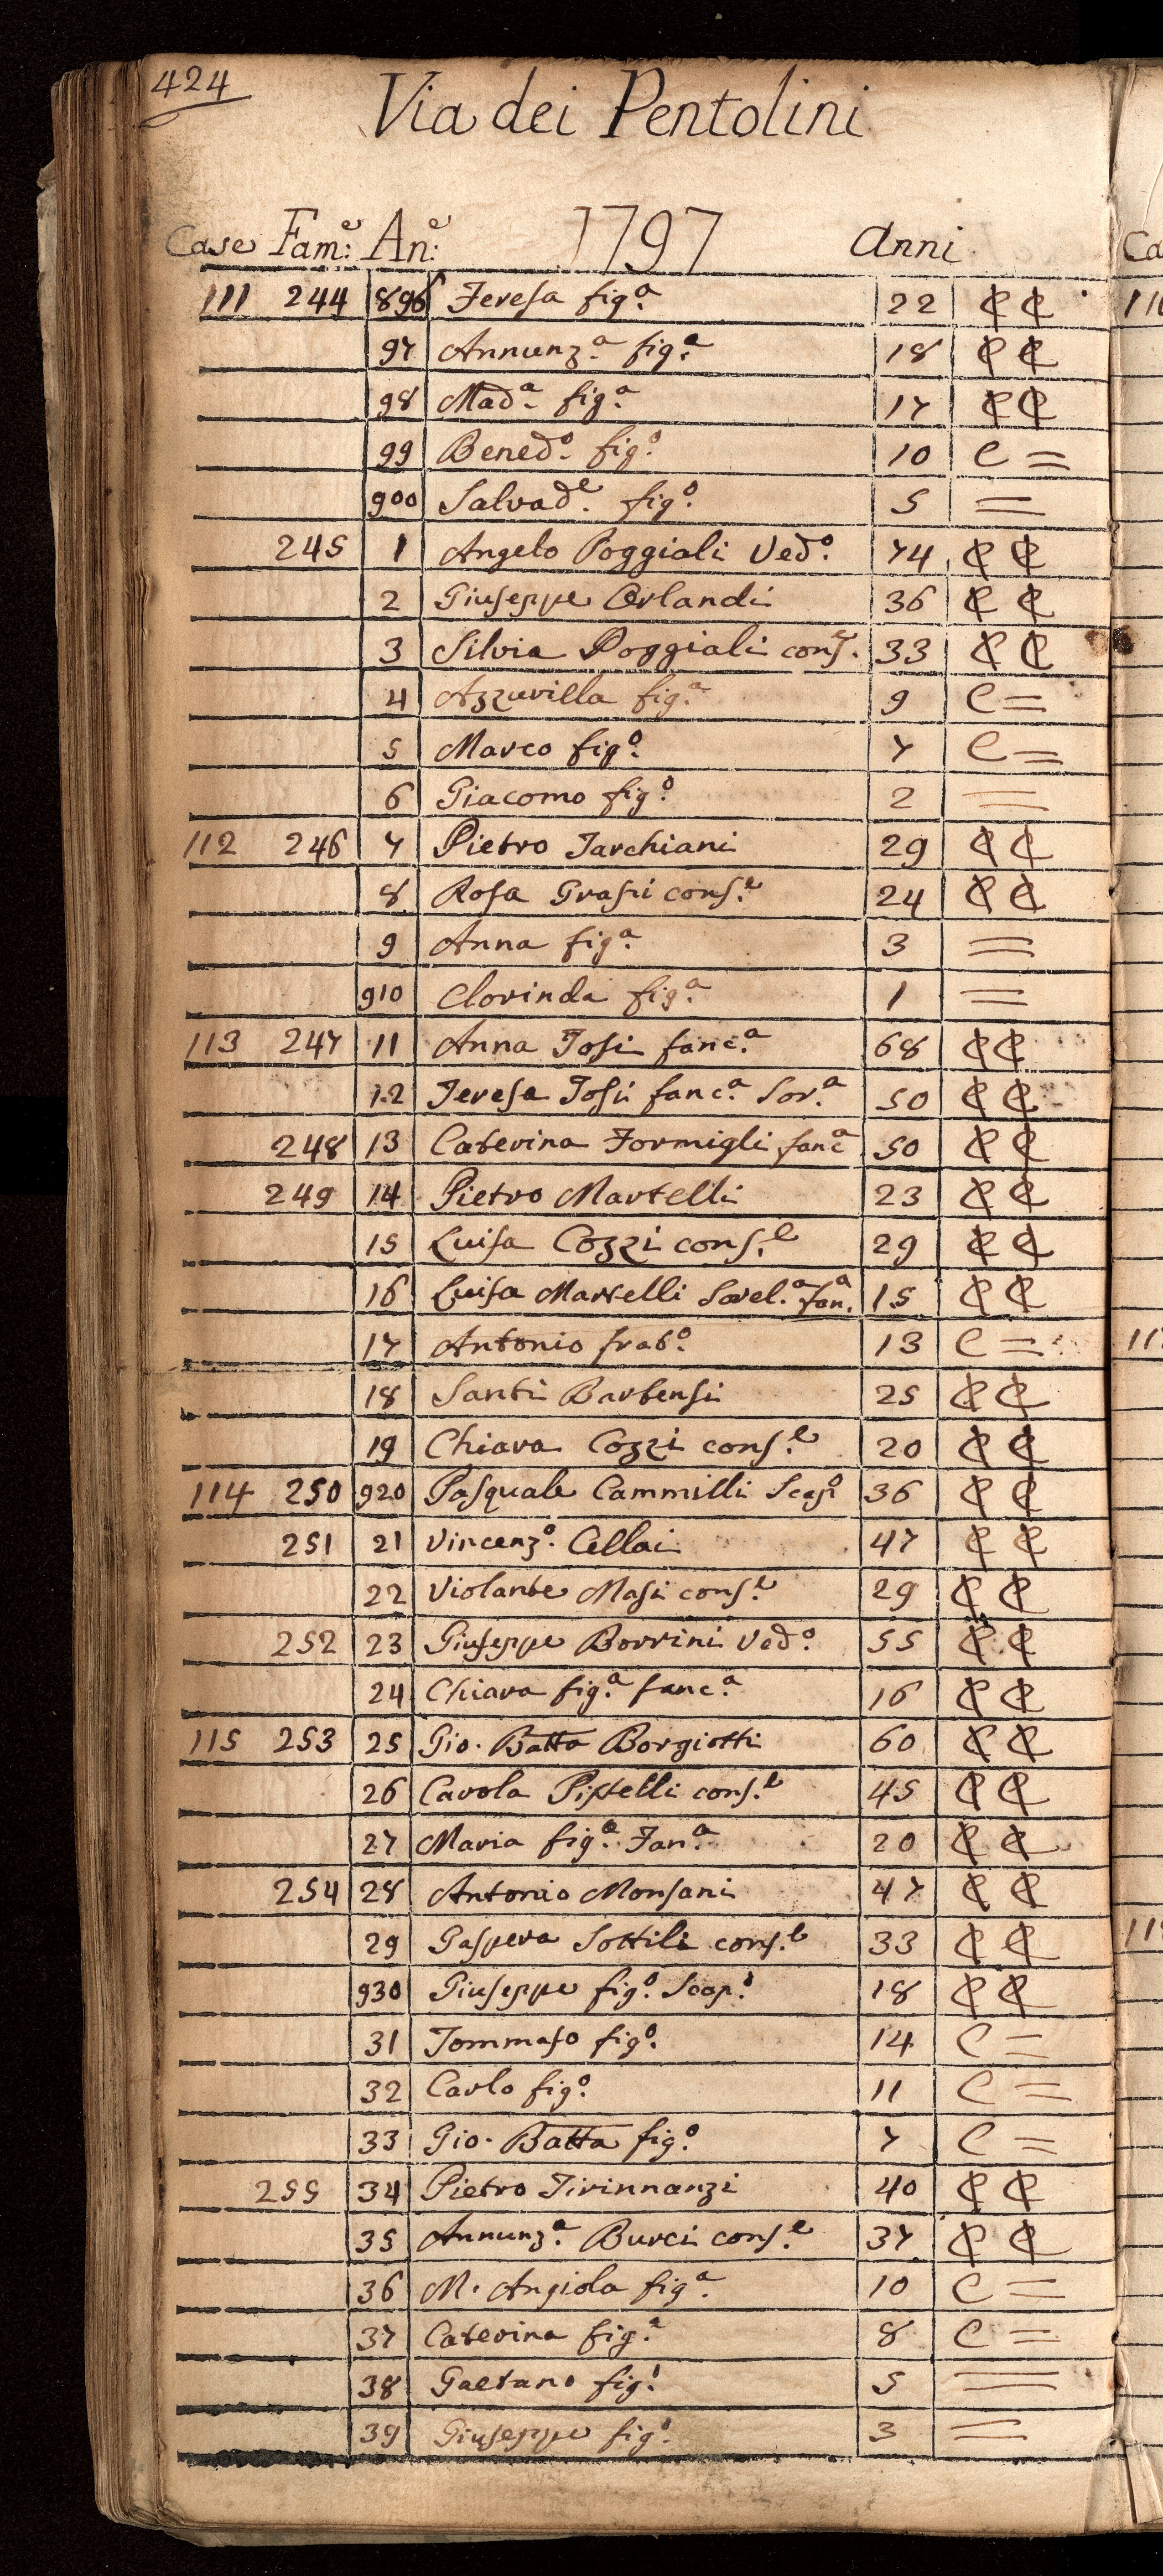 424
Via dei Pentolini
Case Fam:e An:e 1797 Anni
111 244 896 Teresa fig.a 22 ₵ ₵
97 Annunz.a fig.a 18 ₵ ₵
98 Mad.a fig.a 17 ₵ ₵
99 Bened.o fig.o 10 C =
900 Salvad.e fig.o 5 =
245 1 Angelo Poggiali Ved.o 74 ₵ ₵
2 Giuseppe Orlandi 36 ₵ ₵
3 Silvia Poggiali cons.e 33 ₵ ₵
4 Azzurilla fig.a 9 C =
5 Marco fig.o 7 C =
6 Giacomo fig.o 2 =
112 246 7 Pietro Tarchiani 29 ₵ ₵
8 Rosa Grassi cons.e 24 ₵ ₵
9 Anna fig.a 3 =
910 Clorinda fig.a 1 =
113 247 11 Anna Tosi fanc.a 68 ₵ ₵
12 Teresa Tosi fanc.a Sor.a 50 ₵ ₵
248 13 Caterina Formigli fanc.a 50 ₵ ₵
249 14 Pietro Martelli 23 ₵ ₵
15 Luisa Cozzi cons.e 29 ₵ ₵
16 Luisa Martelli Sorel.a fan.a 15 ₵ ₵
17 Antonio frat.o 13 C =
18 Santi Bartensi 25 ₵ ₵
19 Chiara Cozzi cons.e 20 ₵ ₵
114 250 920 Pasquale Cammilli Scap.o 36 ₵ ₵
251 21 Vincenz.o Cellai 47 ₵ ₵
22 Violante Masi cons.e 29 ₵ ₵
252 23 Giuseppe Borrini Ved.o 55 ₵ ₵
24 Chiara fig.a fanc.a 16 ₵ ₵
115 253 25 Gio. Batta Borgiotti 60 ₵ ₵
26 Carola Pistelli cons.e 45 ₵ ₵
27 Maria fig.a Fan.a 20 ₵ ₵
254 28 Antonio Monsani 47 ₵ ₵
29 Gaspera Sottili cons.e 33 ₵ ₵
930 Giuseppe fig.o Scap.o 18 ₵ ₵
31 Tommaso fig.o 14 C =
32 Carlo fig.o 11 C =
33 Gio. Batta fig.o 7 C =
255 34 Pietro Tirinnanzi 40 ₵ ₵
35 Annunz.a Burci cons.e 37 ₵ ₵
36 M. Angiola fig.a 10 C =
37 Caterina fig.a 8 C =
38 Gaetano fig.o 5 =
39 Giuseppe fig.o 3 =